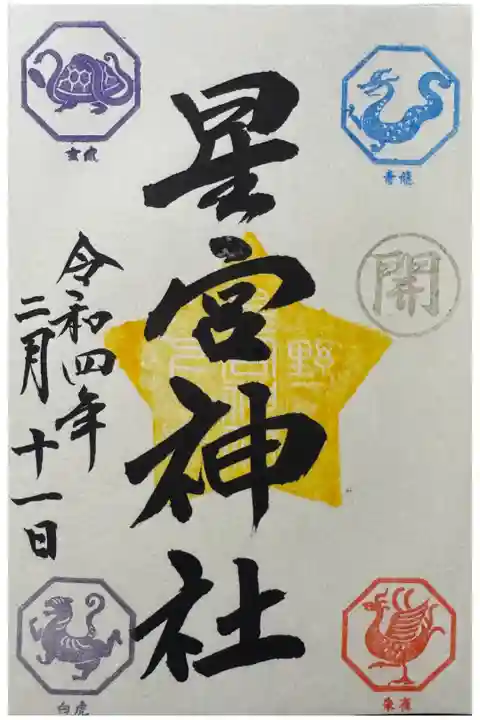 青龍
開
朱雀
星宮神社
野
令和四年
二月十一日
玄武
白虎